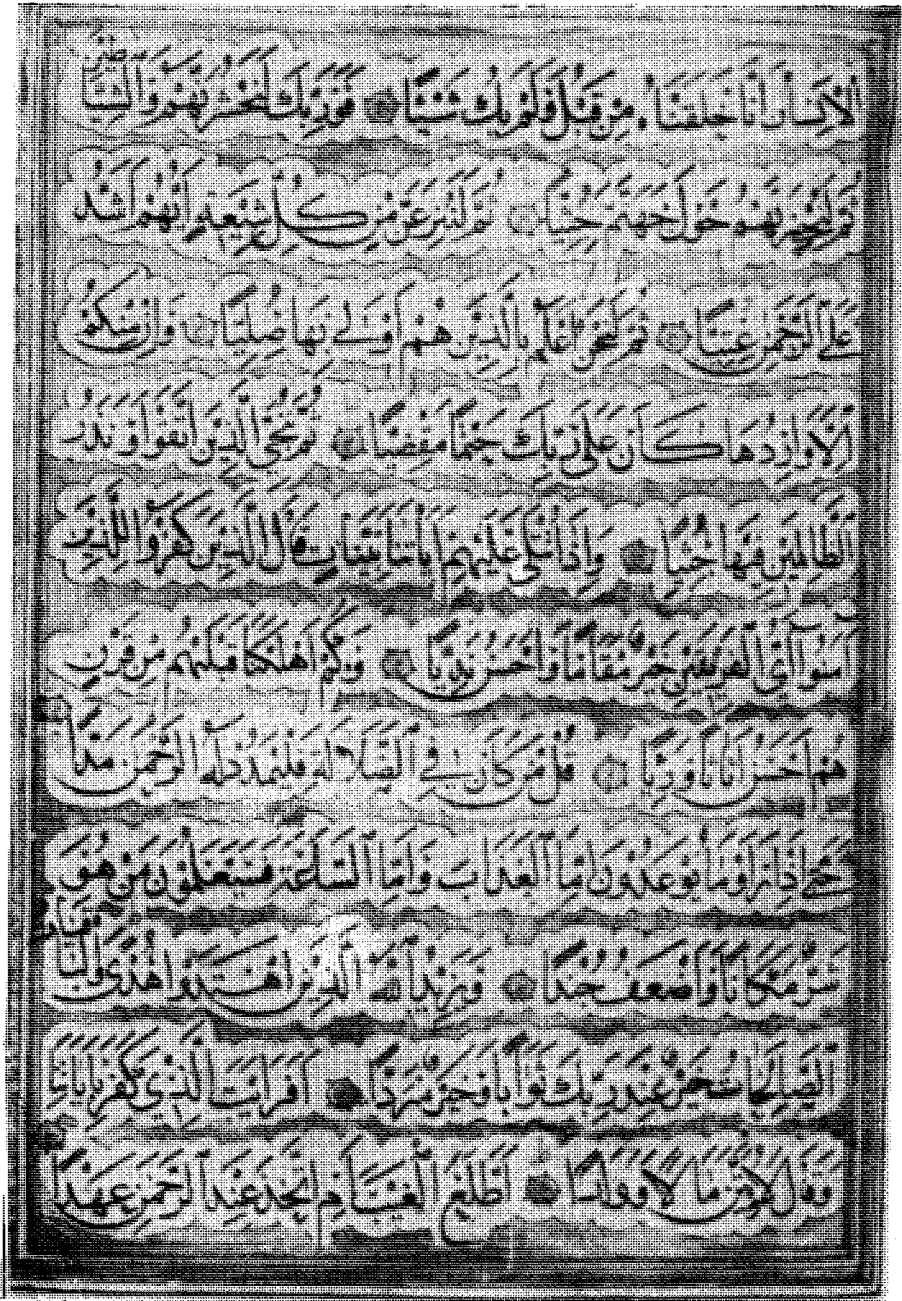 الْاِنْسَانُ اَنَّا خَلَقْنَاهُ مِنْ قَبْلُ وَلَمْ يَكُ شَيْئًا ۝ فَوَرَبِّكَ لَنَحْشُرَنَّهُمْ وَالشَّيَاطِينَ
ثُمَّ لَنُحْضِرَنَّهُمْ حَوْلَ جَهَنَّمَ جِثِيًّا ۝ ثُمَّ لَنَنْزِعَنَّ مِنْ كُلِّ شِيعَةٍ اَيُّهُمْ اَشَدُّ
عَلَى الرَّحْمٰنِ عِتِيًّا ۝ ثُمَّ لَنَحْنُ اَعْلَمُ بِالَّذِينَ هُمْ اَوْلٰى بِهَا صِلِيًّا ۝ وَاِنْ مِنْكُمْ
اِلَّا وَارِدُهَا كَانَ عَلٰى رَبِّكَ حَتْمًا مَقْضِيًّا ۝ ثُمَّ نُنَجِّي الَّذِينَ اتَّقَوْا وَنَذَرُ
الظَّالِمِينَ فِيهَا جِثِيًّا ۝ وَاِذَا تُتْلٰى عَلَيْهِمْ اٰيَاتُنَا بَيِّنَاتٍ قَالَ الَّذِينَ كَفَرُوا لِلَّذِينَ
اٰمَنُوا اَيُّ الْفَرِيقَيْنِ خَيْرٌ مَقَامًا وَاَحْسَنُ نَدِيًّا ۝ وَكَمْ اَهْلَكْنَا قَبْلَهُمْ مِنْ قَرْنٍ
هُمْ اَحْسَنُ اَثَاثًا وَرِئْيًا ۝ قُلْ مَنْ كَانَ فِي الضَّلَالَةِ فَلْيَمْدُدْ لَهُ الرَّحْمٰنُ مَدًّا
حَتّٰى اِذَا رَاَوْا مَا يُوعَدُونَ اِمَّا الْعَذَابَ وَاِمَّا السَّاعَةَ فَسَيَعْلَمُونَ مَنْ هُوَ
شَرٌّ مَكَانًا وَاَضْعَفُ جُنْدًا ۝ وَيَزِيدُ اللّٰهُ الَّذِينَ اهْتَدَوْا هُدًى وَالْبَاقِيَاتُ
الصَّالِحَاتُ خَيْرٌ عِنْدَ رَبِّكَ ثَوَابًا وَخَيْرٌ مَرَدًّا ۝ اَفَرَاَيْتَ الَّذِي كَفَرَ بِاٰيَاتِنَا
وَقَالَ لَاُوتَيَنَّ مَالًا وَوَلَدًا ۝ اَطَّلَعَ الْغَيْبَ اَمِ اتَّخَذَ عِنْدَ الرَّحْمٰنِ عَهْدًا